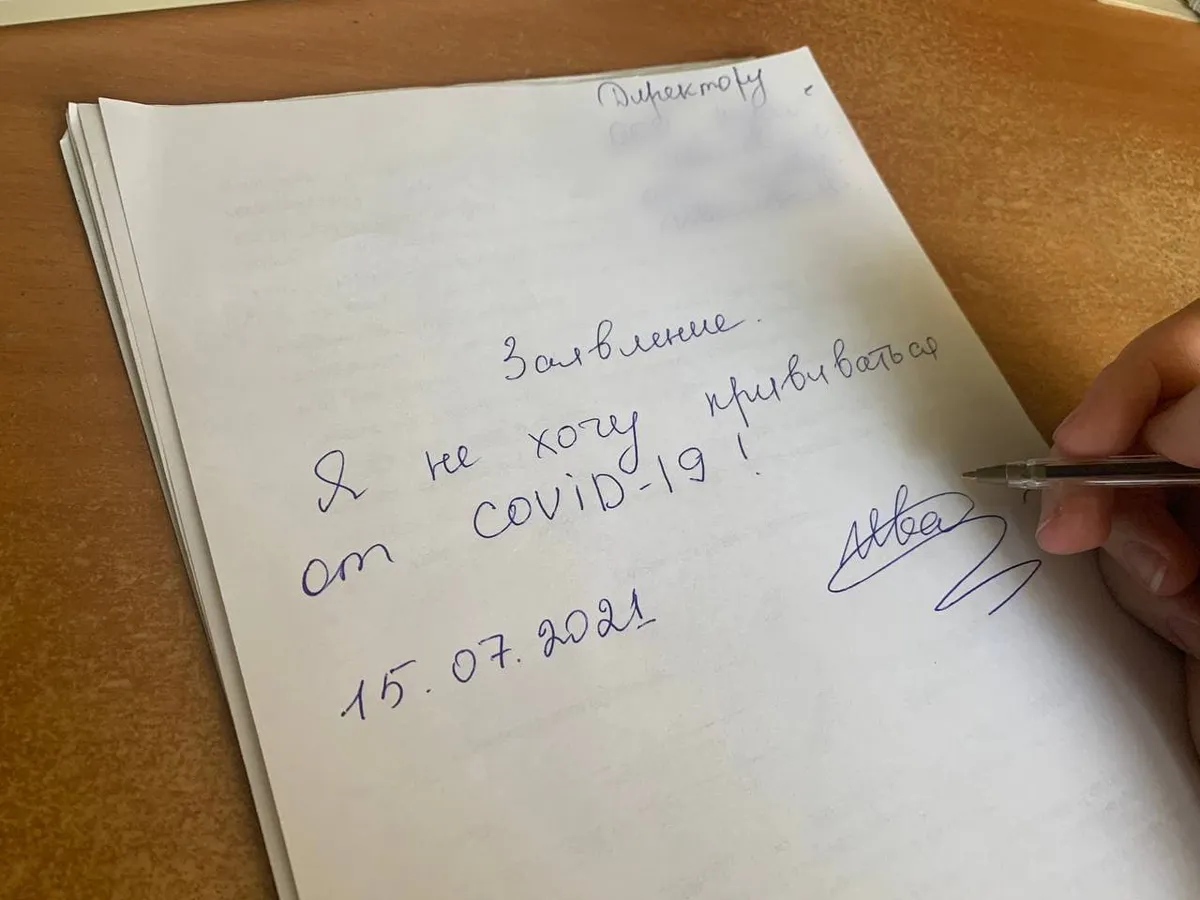 Директору
Заявление.
Я не хочу прививаться
от COViD-19!
15.07.2021